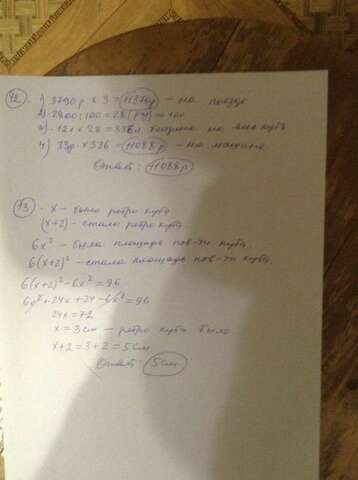 12. 1) 3790р × 3 = 11370р - на поезде
2) 2800 : 100 = 28 (р) по 100
3) 12л × 28 = 336л бензина на весь путь
4) 33р × 336 = 11088р - на машине
Ответ: 11088р
13 x - было ребро куба
(x+2) - стало ребро куба
6x² - была площадь пов-ти куба.
6(x+2)² - стала площадь пов-ти куба
6(x+2)² - 6x² = 96
6x² + 24x + 24 - 6x² = 96
24x = 72
x = 3см - ребро куба было
x+2 = 3+2 = 5см
Ответ: 5см